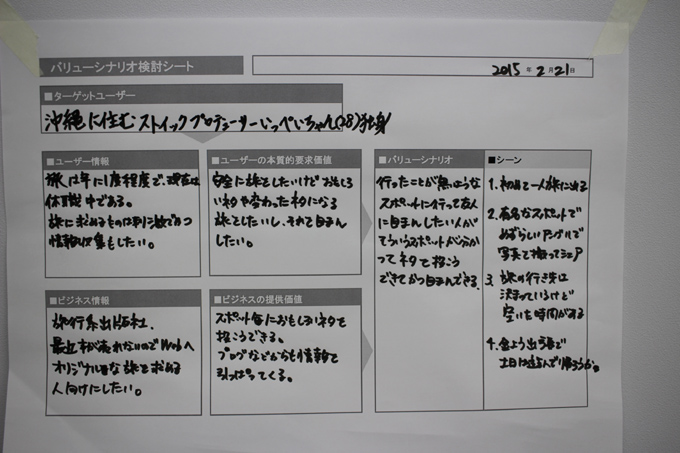 バリューシナリオ検討シート
2015年2月21日
■ターゲットユーザー
沖縄に住むストイックプロデューサーいっぺいちゃん(28)独身
■ユーザー情報
旅は年に1度程度で、現在は
休職中である。
旅に求めるものは刺激でかつ
情報収集もしたい。
■ユーザーの本質的要求価値
安全に旅をしたいけどおもしろ
いネタや変わったネタになる
旅をしたいし、それを自まん
したい。
■バリューシナリオ
行ったことが無いような
スポットに行って友人
に自まんしたい人が
そういうスポットが分か
ってネタを投こう
できてかつ自まんできる。
■シーン
1. 初めて一人旅に出る
2. 有名なスポットで
めずらしいアングルで
写真を撮ってシェア
3. 旅の行き先は
決まっているけど
空いた時間がある
4. 金よう出張で
土日は遊んで帰ろうか。
■ビジネス情報
旅行系出版社。
最近本が売れないのでWebへ
オリジナルな旅を求める
人向けにしたい。
■ビジネスの提供価値
スポット毎におもしろいネタを
投こうできる。
ブログなどからも情報を
引っぱってくる。